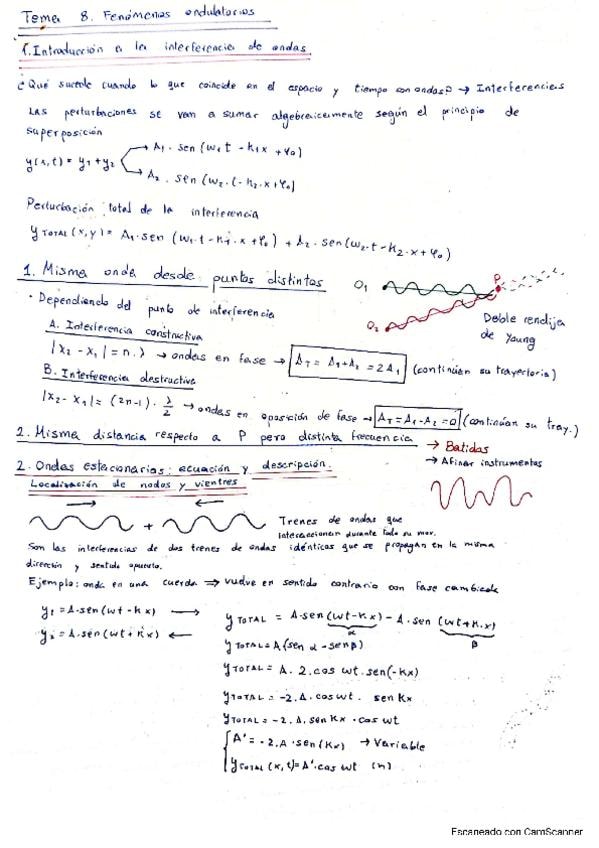 Tema 8. Fenómenos ondulatorios
1. Introducción a la interferencia de ondas.
¿Qué sucede cuando lo que coincide en el espacio y tiempo son ondas? → Interferencias
Las perturbaciones se van a sumar algebraicamente según el principio de
superposición
y(x,t) = y₁+y₂
A₁ . sen (w₁t - k₁x + φ₀)
A₂ . sen (w₂.t - k₂.x + φ₀)
Perturbación total de la interferencia
y TOTAL (x,y) = A₁.sen (w₁.t - k₁.x + φ₀) + A₂.sen(w₂.t - k₂.x + φ₀)
1. Misma onda desde puntos distintos
O₁ P
O₂
Doble rendija
de Young
· Dependiendo del punto de interferencia
A. Interferencia constructiva
|x₂ - x₁| = n.λ → ondas en fase → A_T = A₁+A₂ = 2A₁ (continúan su trayectoria)
B. Interferencia destructiva
|x₂ - x₁| = (2n-1) . λ/2 → ondas en oposición de fase → A_T = A₁-A₂ = 0 (continúan su tray.)
2. Misma distancia respecto a P pero distinta frecuencia → Batidas
→ Afinar instrumentos
2. Ondas estacionarias: ecuación y descripción.
Localización de nodos y vientres
+ Trenes de ondas que
interaccionan durante todo su mov.
Son las interferencias de dos trenes de ondas idénticas que se propagan en la misma
dirección y sentido opuesto.
Ejemplo: onda en una cuerda ⇒ vuelve en sentido contrario con fase cambiada
y₁ = A.sen(wt - kx) →
y₂ = A.sen(wt + kx) ←
y TOTAL = A.sen(wt - k.x) - A.sen (wt + k.x)
α β
y TOTAL = A(sen α - sen β)
y TOTAL = A. 2. cos wt. sen(-kx)
y TOTAL = -2. A. cos wt. sen kx
y TOTAL = -2. A. sen kx . cos wt
A' = -2.A.sen(kx) → Variable
y TOTAL (x,t) = A'.cos wt (m)
Escaneado con CamScanner